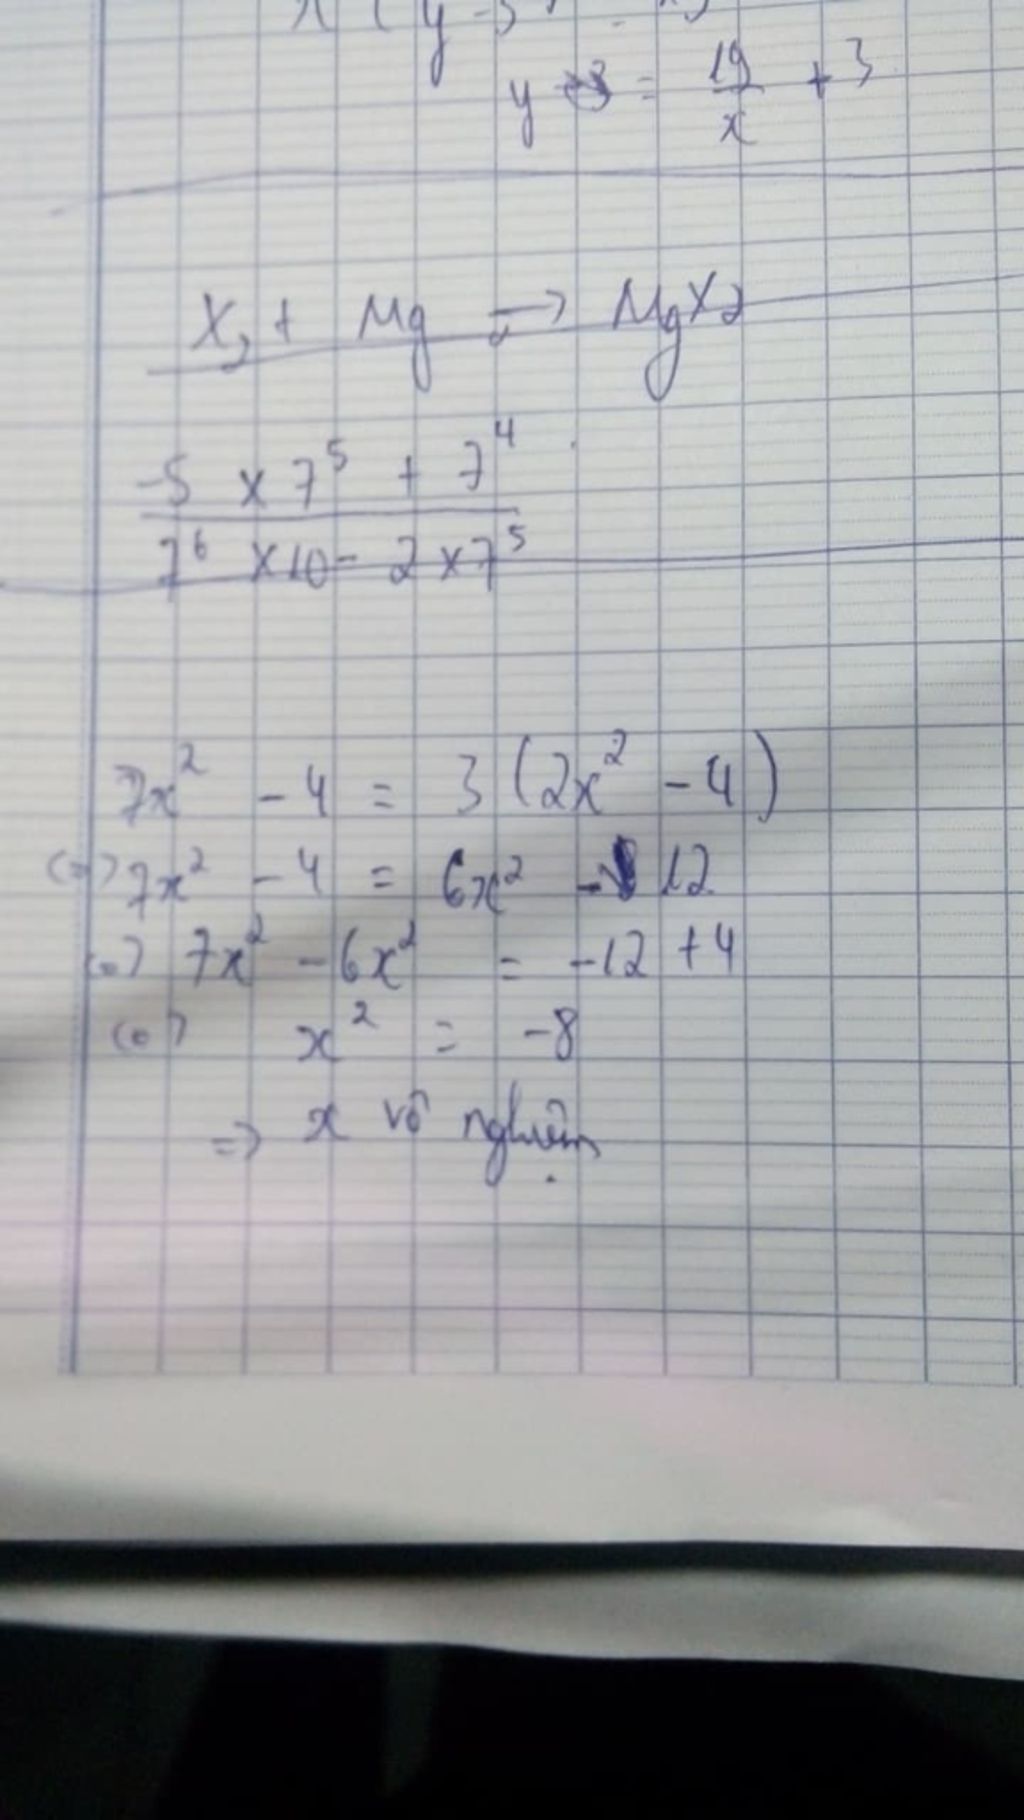 y = 19/x + 3
X2 + Mg → MgX2
-5 x 7^5 + 7^4
7^6 x 10 - 2 x 7^5
7x² - 4 = 3(2x² - 4)
<=> 7x² - 4 = 6x² - 12
<=> 7x² - 6x² = -12 + 4
<=> x² = -8
=> x vô nghiệm